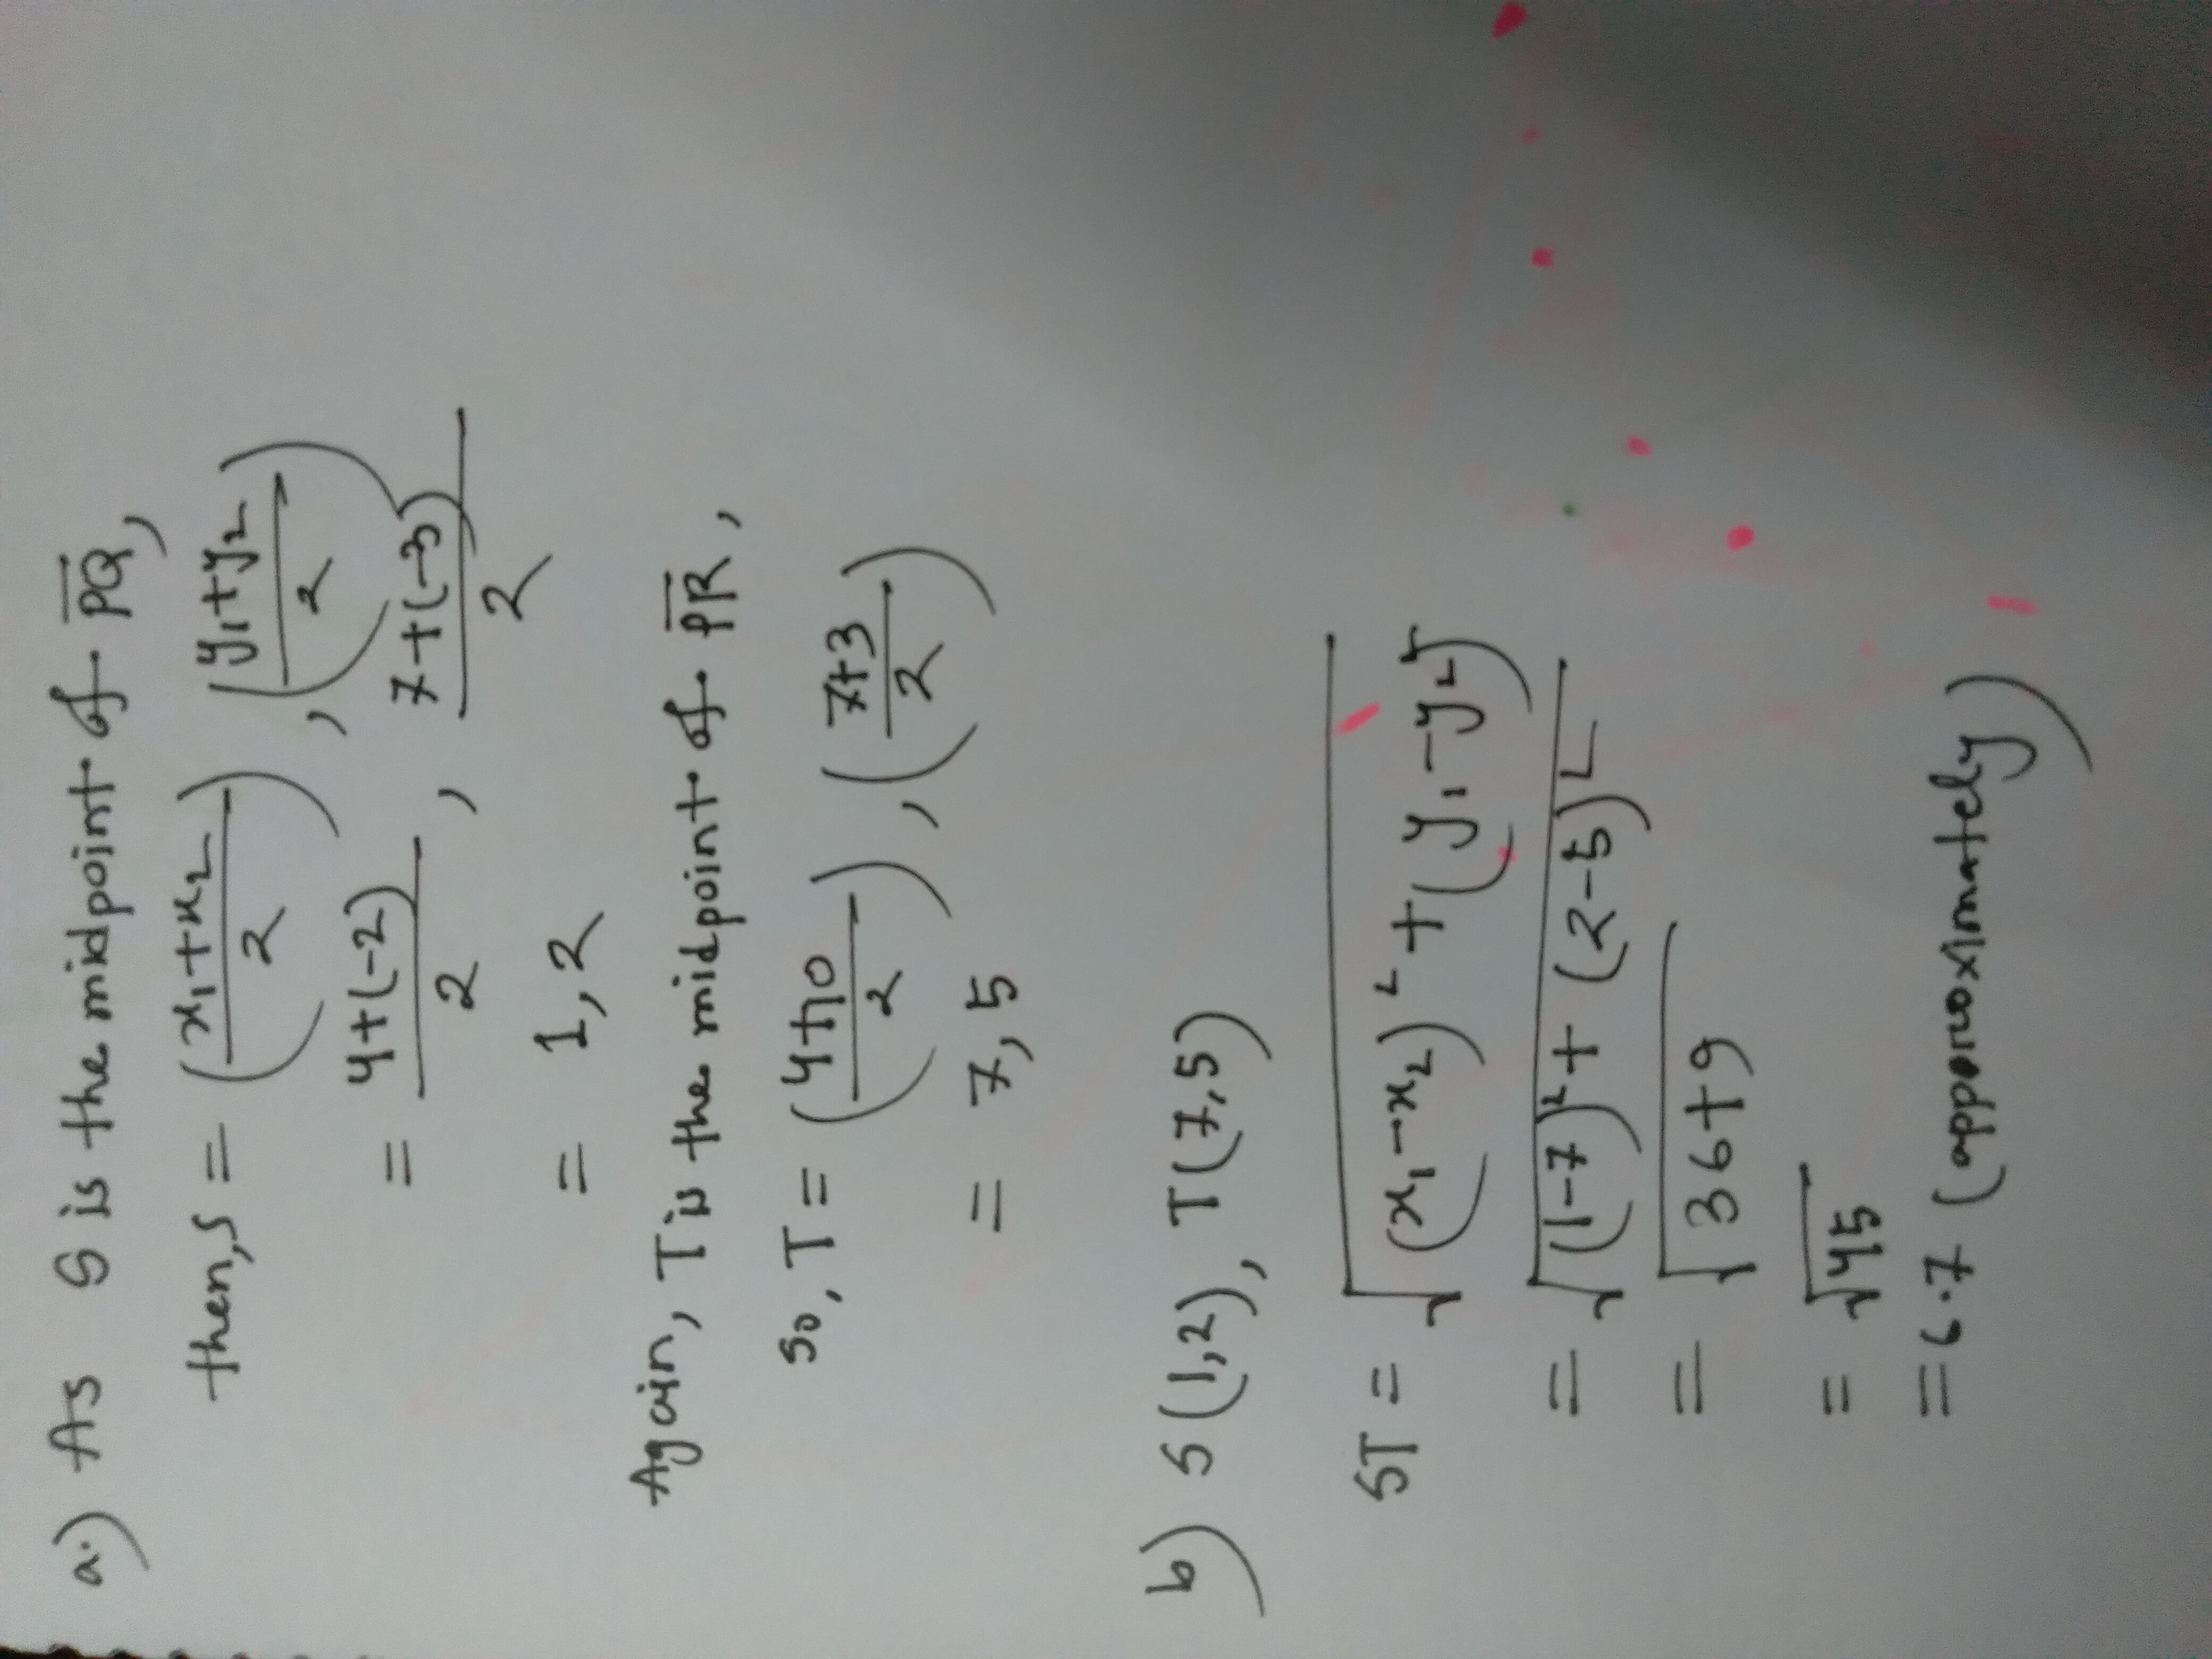 a.) As S is the midpoint of P̅Q̅,
then, S = (x₁+x₂/2), (y₁+y₂/2)
= 4+(-2)/2, 7+(-3)/2
= 1,2
Again, T is the midpoint of P̅R̅,
so, T = (4+10/2), (7+3/2)
= 7,5
b) S(1,2), T(7,5)
ST = √(x₁-x₂)² + (y₁-y₂)²
= √(1-7)² + (2-5)²
= √36+9
= √45
= 6.7 (approximately)